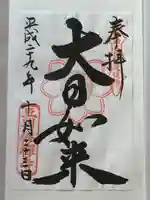 奉拝
大日如来
平成二十九年十一月二十三日